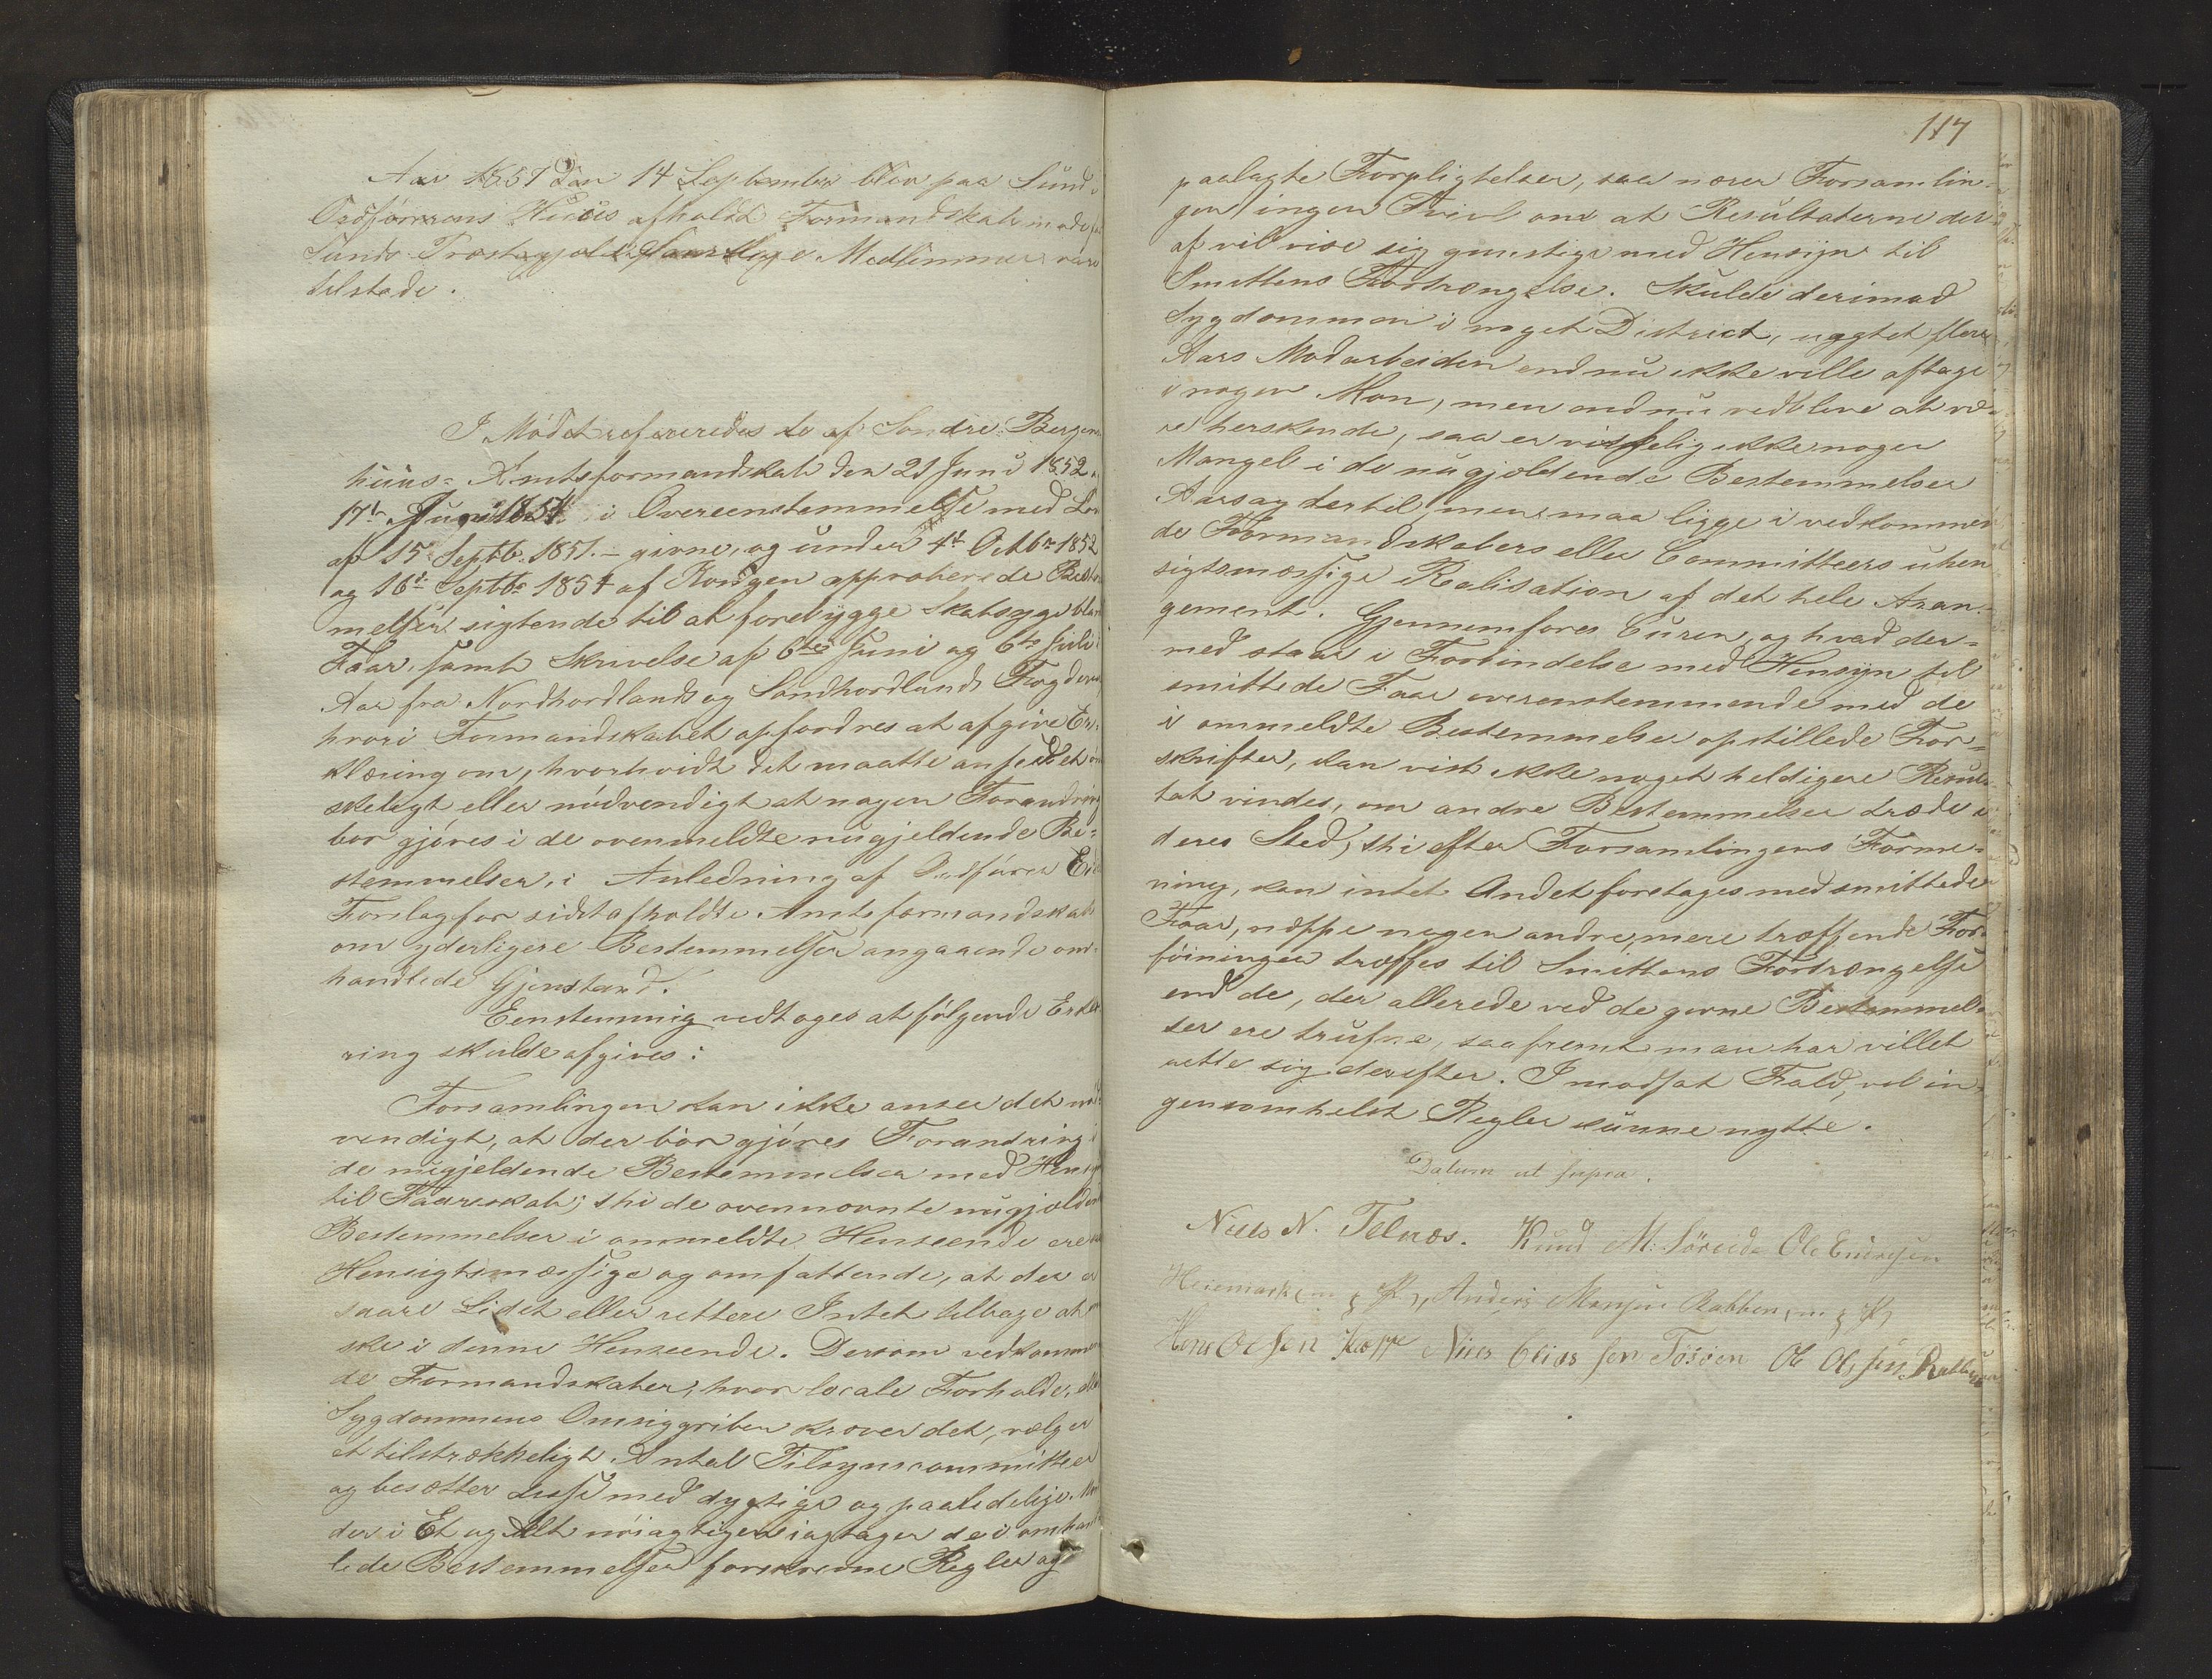 Aar 1857 den 14 September blev paa Sund
Ordførerens Huuis afholdt Formandskabsmøde f
Sunds Præstegjeld. Samtlige Medlemmer vare
tilstede.
I Mødet refereredes de af Søndre Bergen
huus= Amtsformandskab den 21 Juni 1852 
17de Juni 1854 i Overeenstemmelse med Lov
af 15 Septb. 1851. – givne, og under 4de Octbr 1852
og 16de Septbr 1854 af Kongen approberede Bestem
melser, sigtende til at forebygge Skabsyge blan
Faar, samt Skrivelse af 6te Juni og 6te Juli
Aar fra Nordhordlands og Søndhordlands Fogderi
hvori Formandskabet opfordres at afgive Er=
klæring om, hvorhvidt det maatte ansees øn
skeligt eller nødvendigt at nogen Forandring
bør gjøres i de ovenmeldte nugjeldende Be=
stemmelser, i Anledning af Ordfører
Forslag for sidstafholdte Amtsformandskab
om yderligere Bestemmelser angaaende om=
handlede Gjenstand.
Eenstemmig vedtoges at følgende Erklæ
ring skulde afgives:
Forsamlingen kan ikke ansee det nød
vendigt, at der bør gjøres Forandring i
de nugjeldende Bestemmelser med Hensyn
til Faareskab; thi de ovennævnte nugjelden
Bestemmelser i ommeldte Henseende ere
Hensigtsmæssige og omfattende, at der er
saare Lidet eller rettere Intet tilbage at øn
ske i denne Henseende. Dersom vedkommen
de Formandskaber, hvor locale Forholde, ell
Sygdommens Omsiggriben kræver det, vælger
et tilstrækkeligt Antal Tilsynscommitteer
og besætter disse med dygtige og paalidelige Mæn
der i Et og Alt nøiagtigen iagtager de i omhan
lede Bestemmelser forskrevne Regler og
117
paalagte Forpligtelser, saa nærer Forsamlin=
gen ingen Tvivl om at Resultaterne der=
af vil vise sig gunstige med Hensyn til
Smittens Fortrængelse. Skulde derimod
Sygdommen i noget District, uagtet flere
Aars Modarbeiden endnu ikke ville aftage
i nogen Mon, men endnu vedblive at væ=
re herskende, saa er visselig ikke nogen
Mangel i de nugjældende Bestemmelser
Aarsag dertil, men maa ligge i vedkommen
de Formandskabers eller Committeers uhen
sigtsmæssige Realisation af det hele Aran=
gement. Gjennemføres Curen, og hvad der=
med staar i Forbindelse med Hensyn til
smittede Faar overenstemmende med de
i ommeldte Bestemmelser opstillede For=
skrifter, kan vist ikke noget heldigere Resul=
tat vindes, om andre Bestemmelser træde i
deres Sted, thi efter Forsamlingens Forme=
ning, kan intet Andet foretages med smittede
Faar, neppe nogen andre, mere træffende For=
føininger træffes til Smittens Fortrængelse
end de, der allerede ved de givne Bestemmel=
ser ere trufne, saafremt man har villet
rette sig derefter. I modsat Fald, vil in=
gensomhelst Regler kunne nytte.
Datum ut supra.
Niels N. Telnæs. Knud M. Søreide Ole Endresen
Heiemark, m. f. P., Anders Monsen Rabben, m. f. P.
Hans Olsen Kæppe Nils Elias sen Tøsøen Ole Olsen Rabben